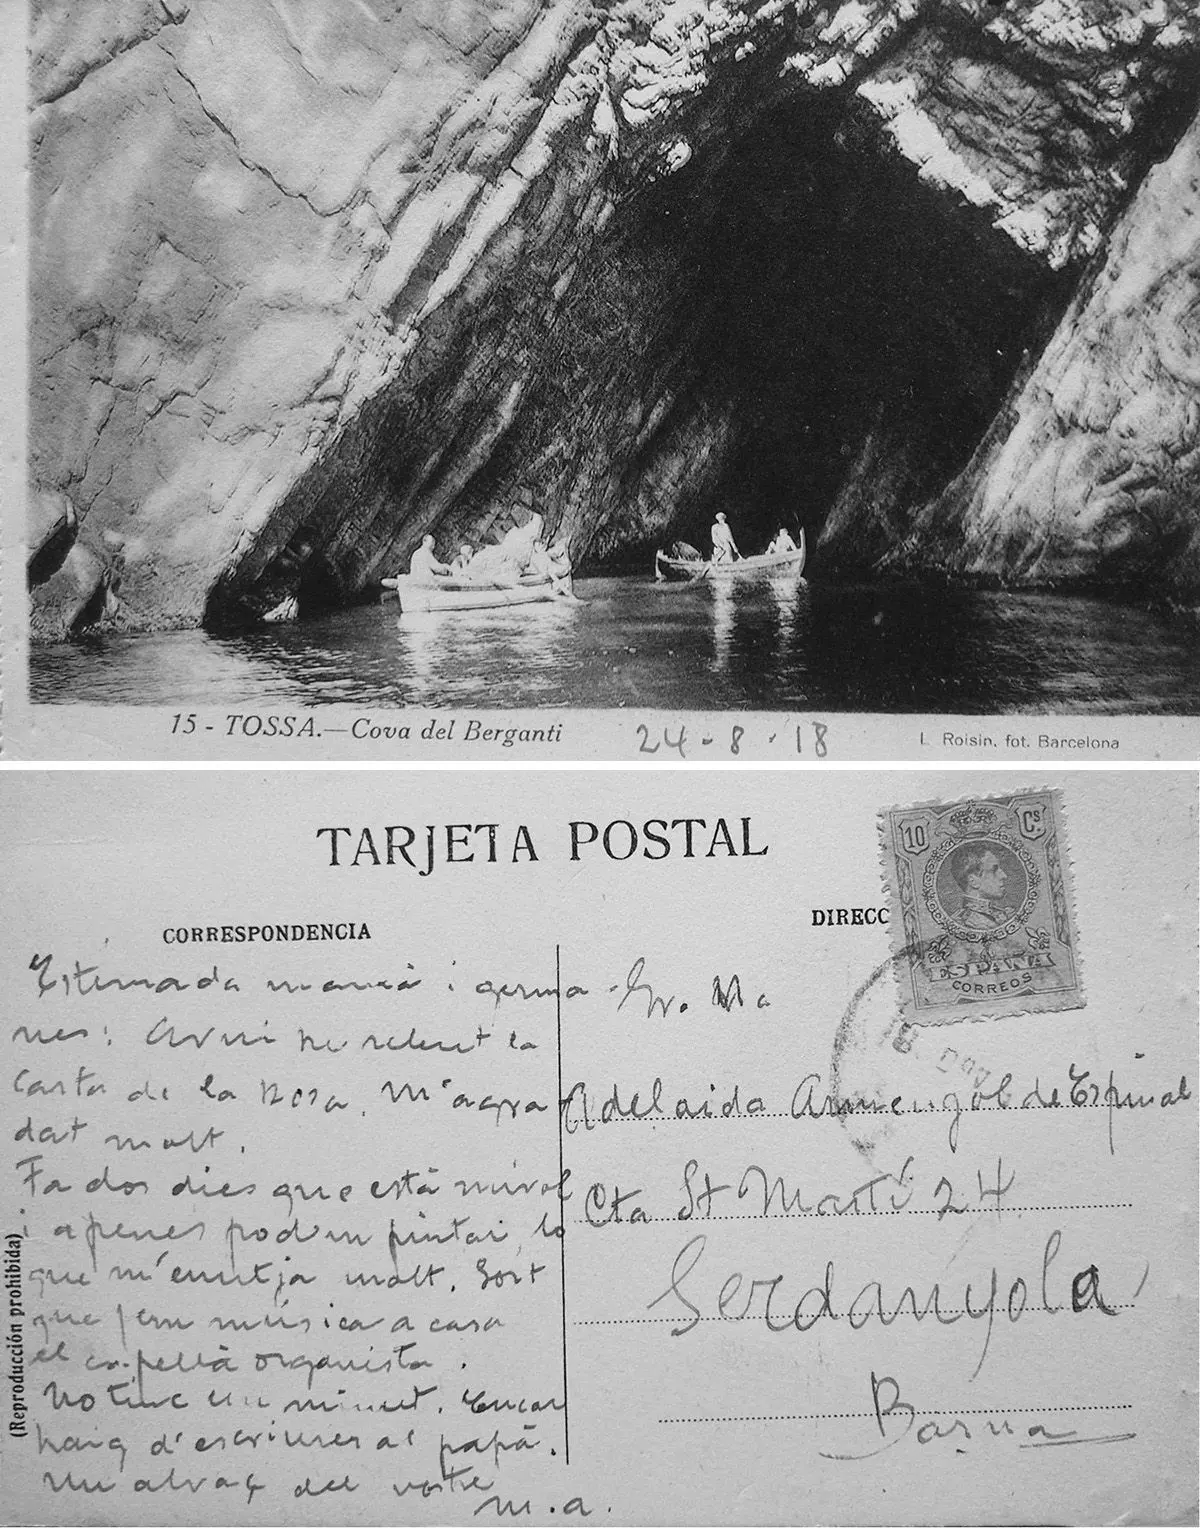 15 - TOSSA.—Cova del Berganti
24 - 8 - 18
L Roisin, fot. Barcelona
TARJETA POSTAL
10 Cs.
ESPAÑA
CORREOS
CORRESPONDENCIA
DIRECC
Estimada mamà i germa
nes: Avui he rebut la
carta de la Rosa, m'agra
dat molt.
Fa dos dies que està núvol
i apenes podem pintar, lo
que m'enutja molt. Sort
que fem música a casa
el capellà organista.
No tinc un minut. Encar
haig d'escriures al papà.
Un abraç del vostre
m.a.
Adelaida Armengol de Espinal
Cta St Martí 24
Serdanyola,
Barna
(Reproducción prohibida)